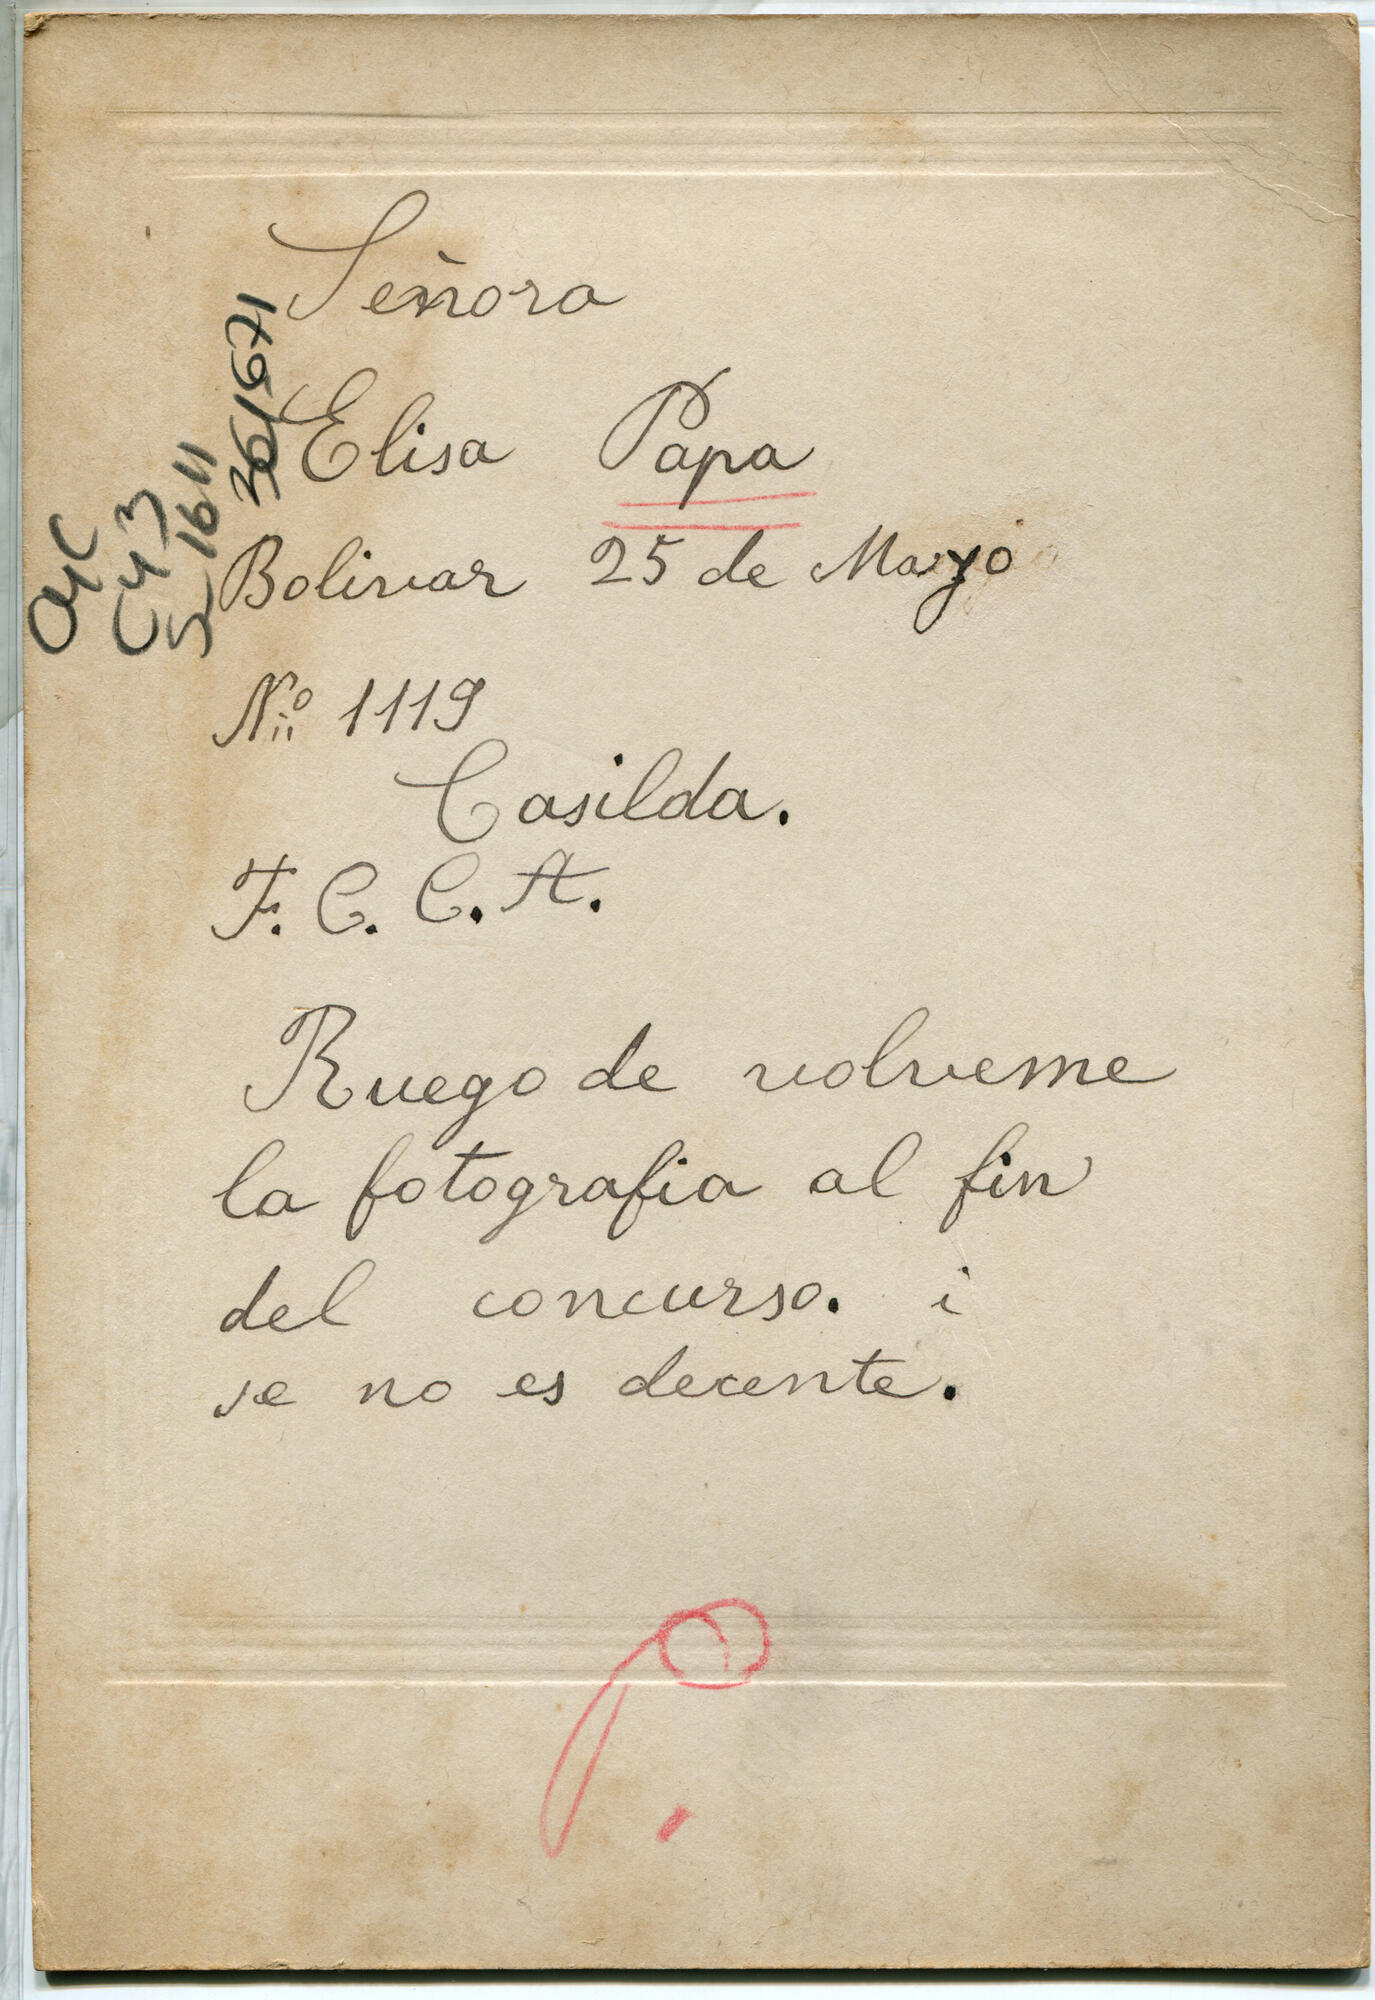 Señora
Elisa Papa
Bolivar 25 de Mayo
Nº 1119
Casilda.
F. C. C. A.
Ruego de volveme
la fotografia al fin
del concurso. i
se no es decente.
P.
AyC
C43
S 1611
361671